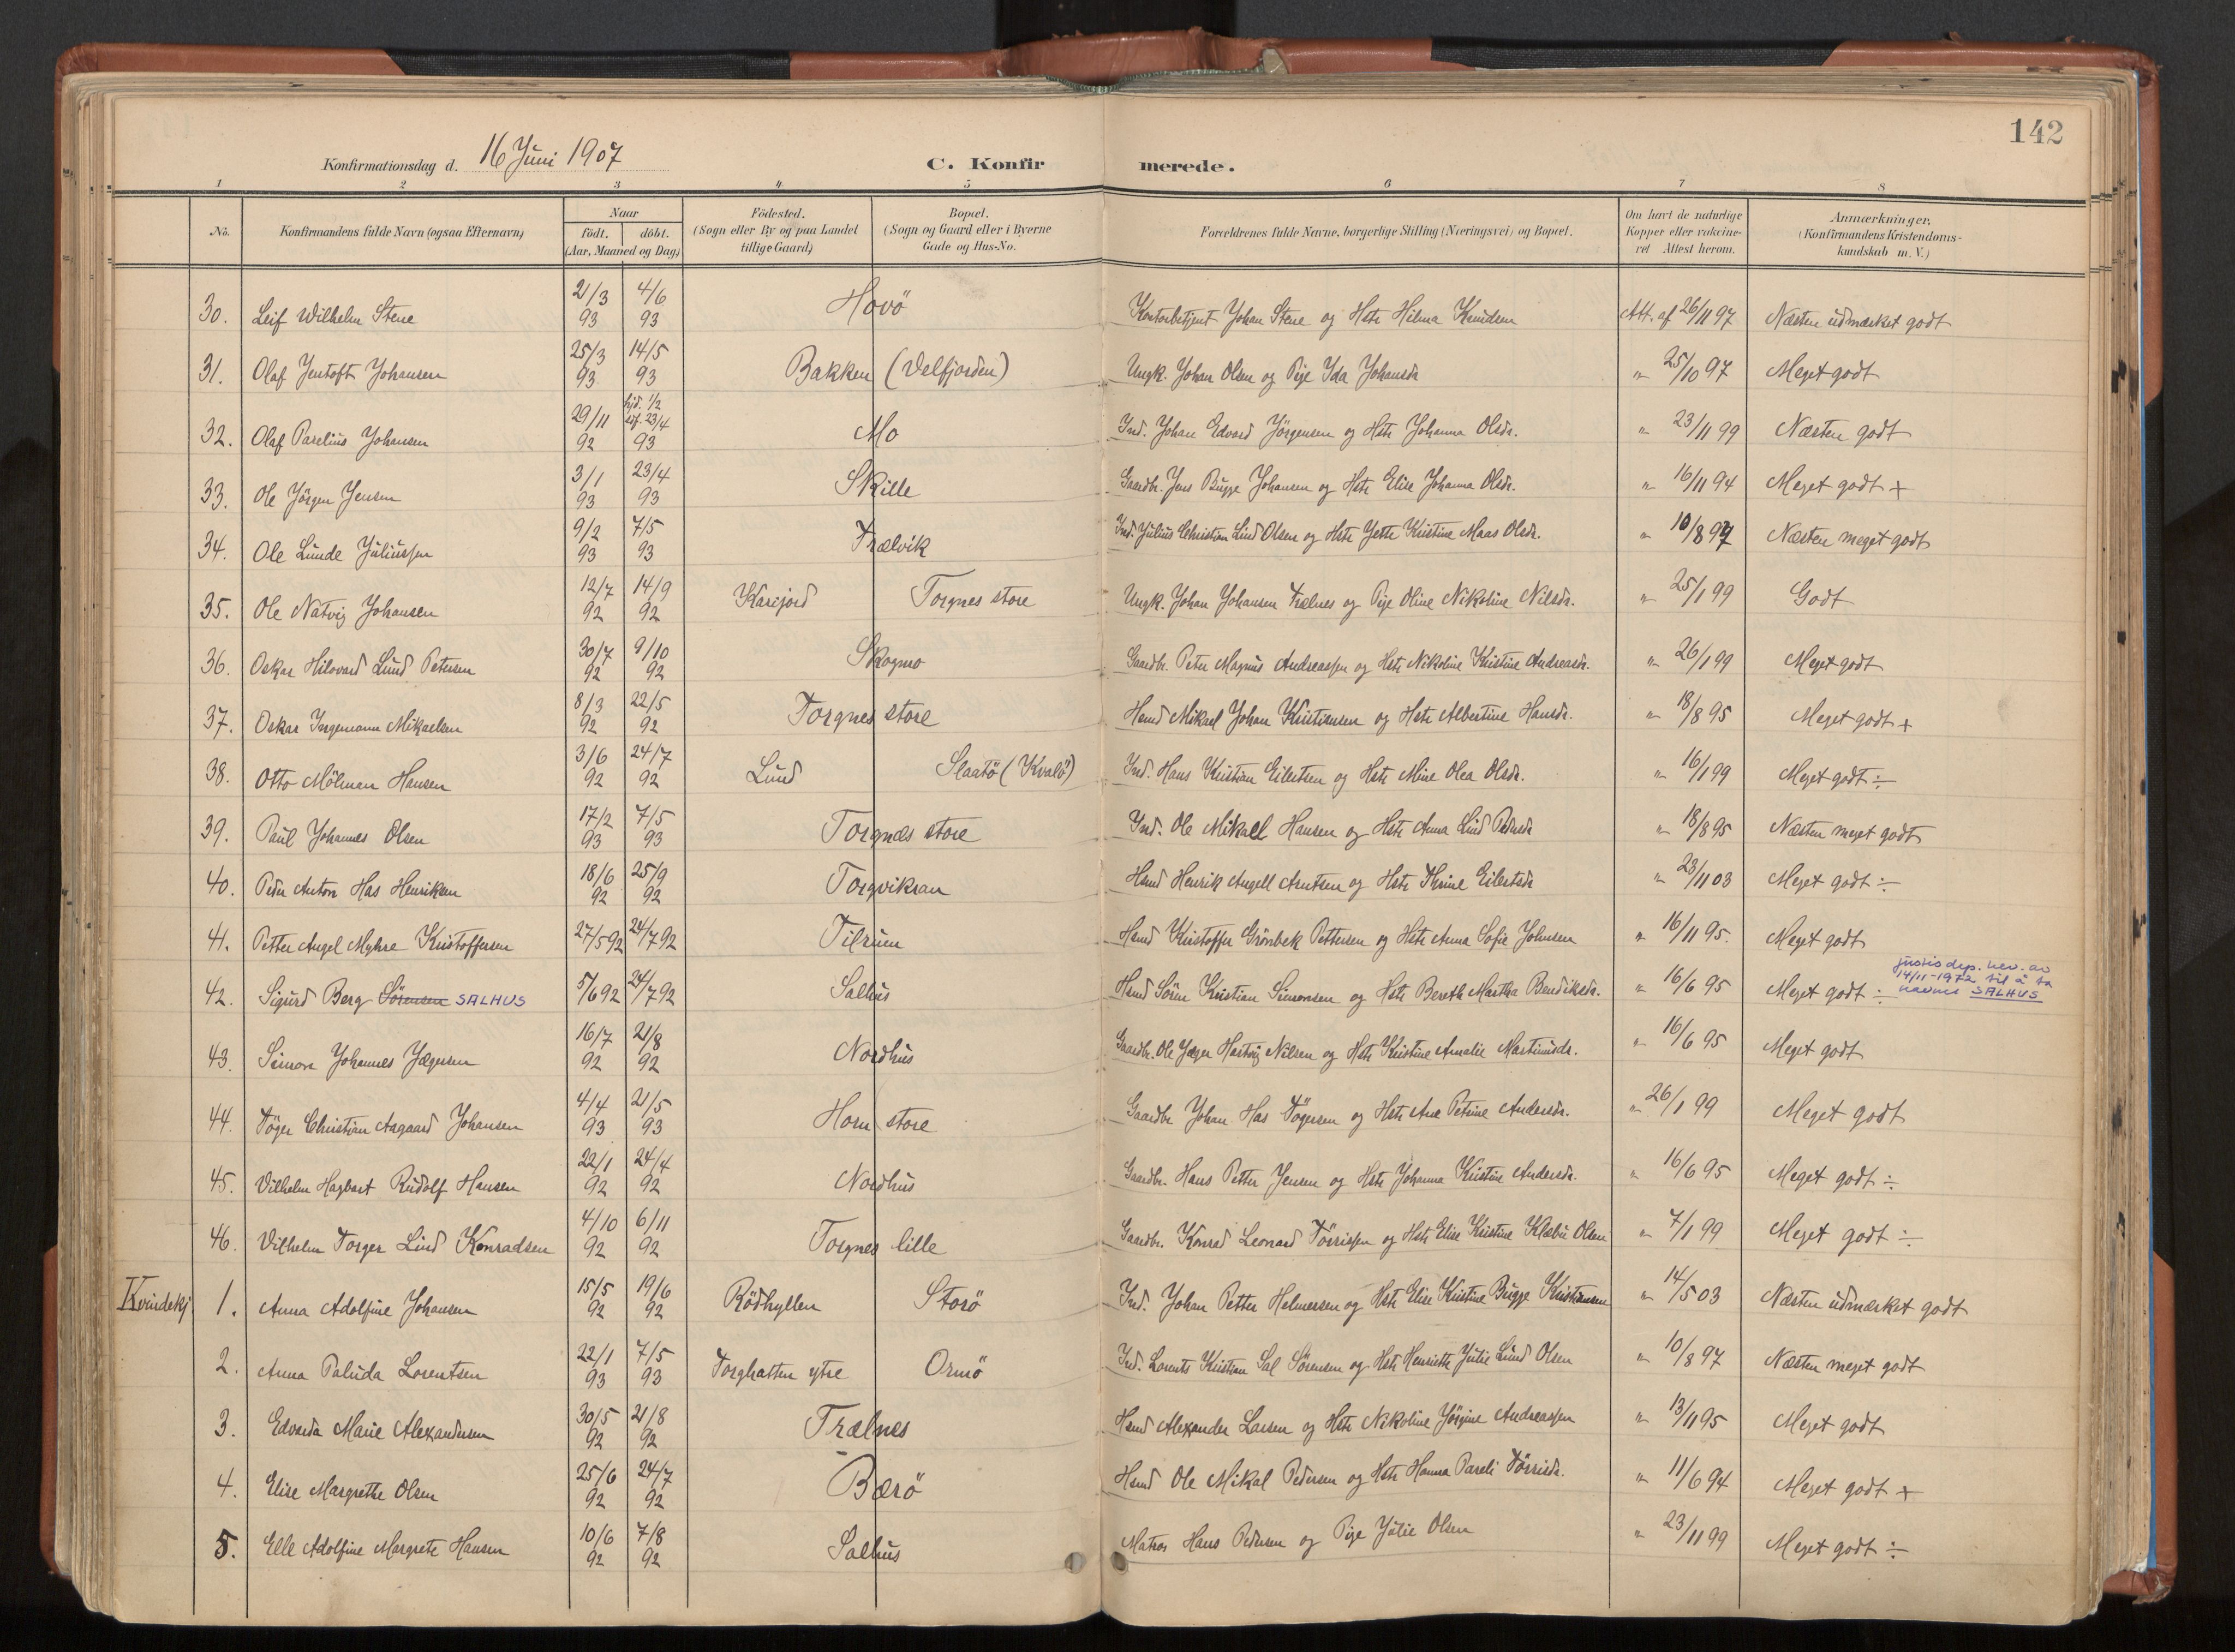 142
Konfirmationsdag d. 16 Juni 1907 C. Konfirmerede.
1 2 3 4 5 6 7 8
No. Konfirmandens fulde Navn (ogsaa Efternavn) Naar født. døbt. (Aar, Maaned og Dag) Fødested. (Sogn eller By og paa Landet tillige Gaard) Bopæl. (Sogn og Gaard eller i Byerne Gade og Hus-No. Forældrenes fulde Navne, borgerlige Stilling (Næringsvei) og Bopæl. Om havt de naturlige Kopper eller vakcineret Attest herom. Anmærkninger. (Konfirmandens Kristendomskundskab m. V.)
30. Leif Wilhelm Stene 21/3 93 4/6 93 Havö Kontorbetjent Johan Stene og Hstr Hilma Knudsen Att. af 26/11 97 Næsten udmærket godt
31. Olaf Jentoft Johansen 25/3 93 14/5 93 Bakken (Velfjorden) Ungk. Johan Olsen og Pige Ida Johansdr " 25/10 97 Meget godt
32. Olaf Parelius Johansen 29/11 92 hjd. 1/2 stf. 23/4 93 Mo Ind. Johan Edvard Jörgensen og Hstr Johanna Olsdr. " 23/11 99 Næsten godt
33. Ole Jörgen Jensen 3/1 93 23/4 93 Skille Gaardbr. Jens Bugge Johansen og Hstr Elise Johanna Olsdr. " 16/11 94 Meget godt +
34. Ole Lunde Juliussen 9/2 93 7/5 93 Trælvik Ind. Julius Christian Lind Olsen og Hstr Jette Kristine Maas Olsdr. " 10/8 97 Næsten meget godt
35. Ole Natvig Johansen 12/7 92 14/9 92 Karijord Torgnes store Ungk. Johan Johansen Trælnes og Pige Oline Nikoline Nilsdr. " 25/1 99 Godt
36. Oskar Hilovard Lund Petersen 30/7 92 9/10 92 Skogmo Gaardbr. Peter Magnus Andreassen og Hstr Nikoline Kristine Andreasdr. " 26/1 99 Meget godt
37. Oskar Ingemann Mikaelsen 8/3 92 22/5 92 Torgnes store Hsmd Mikael Johan Kristiansen og Hstr Albertine Hansdr. " 18/8 95 Meget godt +
38. Otto Mölman Hansen 3/6 92 24/7 92 Lund Slaatö (Kvalö) Ind. Hans Kristian Eilertsen og Hstr Mine Olea Olsdr. " 16/1 99 Meget godt ÷
39. Paul Johannes Olsen 17/2 93 7/5 93 Torgnes store Ind. Ole Mikael Hansen og Hstr Anna Lind Pedersdr " 18/8 95 Næsten meget godt
40. Peder Anton Has Henriksen 18/6 92 25/9 92 Torgviksan Hsmd Henrik Angell Arntsen og Hstr Thrine Eilertsdr " 23/11 03 Meget godt ÷
41. Petter Angel Myhre Kristoffersen 27/5 92 24/7 92 Tilrum Hsmd Kristoffer Grönbek Pettersen og Hstr Anna Sofie Johnsen " 16/11 95. Meget godt
42. Sigurd Berg Sörensen SALHUS 5/6 92 24/7 92 Salhus Hsmd Sören Kristian Simonsen og Hstr Bereth Martha Bendiksdr. " 16/6 95 Meget godt ÷
justisdep. bev. av
14/11-1972 til å ta
navnet SALHUS
43. Simon Johannes Jægersen 16/7 92 21/8 92 Nordhus Gaardbr. Ole Jæger Hartvig Nilsen og Hstr Kristine Amalie Martinusdr. " 16/6 95 Meget godt
44. Töger Christian Aagaard Johansen 4/4 93 21/5 93 Horn store Gaardbr Johan Has Tögersen og Hstr Ane Petrine Andersdr. " 26/1 99 Meget godt
45. Vilhelm Hagbart Rudolf Hansen 22/1 92 24/4 92 Nordhus Gaardbr. Hans Petter Jensen og Hstr Johanna Kristine Andersdr. " 16/6 95 Meget godt ÷
46. Vilhelm Torger Lind Konradsen 4/10 92 6/11 92 Torgnes lille Gaardbr. Konrad Leonard Törrissen og Hstr Elise Kristine Klæbu Olsen " 7/1 99 Meget godt ÷
Kvindekj. 1. Anna Adolfine Johansen 15/5 92 19/6 92 Rödhyllen Storö Ind. Johan Petter Helmersen og Hstr Elise Kristine Bugge Kristiansen " 14/5 03 Næsten udmærket godt
2. Anna Paluda Lorentsen 22/1 93 7/5 93 Torghatten ytre Ormö Ind. Lorents Kristian Sal Sörensen og Hstr Henriette Julie Lund Olsen " 10/8 97 Næsten meget godt
3. Edvarda Marie Alexandersen 30/5 92 21/8 92 Trælnes Hsmd Alexander Larsen og Hstr Nikoline Jörgine Andreassen " 13/11 95 Meget godt
4. Elise Margrethe Olsen 25/6 92 24/7 92 Bærö Hsmd Ole Mikal Pedersen og Hstr Hanna Pareli Törrisdr. " 11/6 94 Meget godt +
5. Elle Adolfine Margrete Hansen 10/6 92 7/8 92 Salhus Matros Hans Pedersen og Pige Julie Olsen " 23/11 99 Meget godt ÷